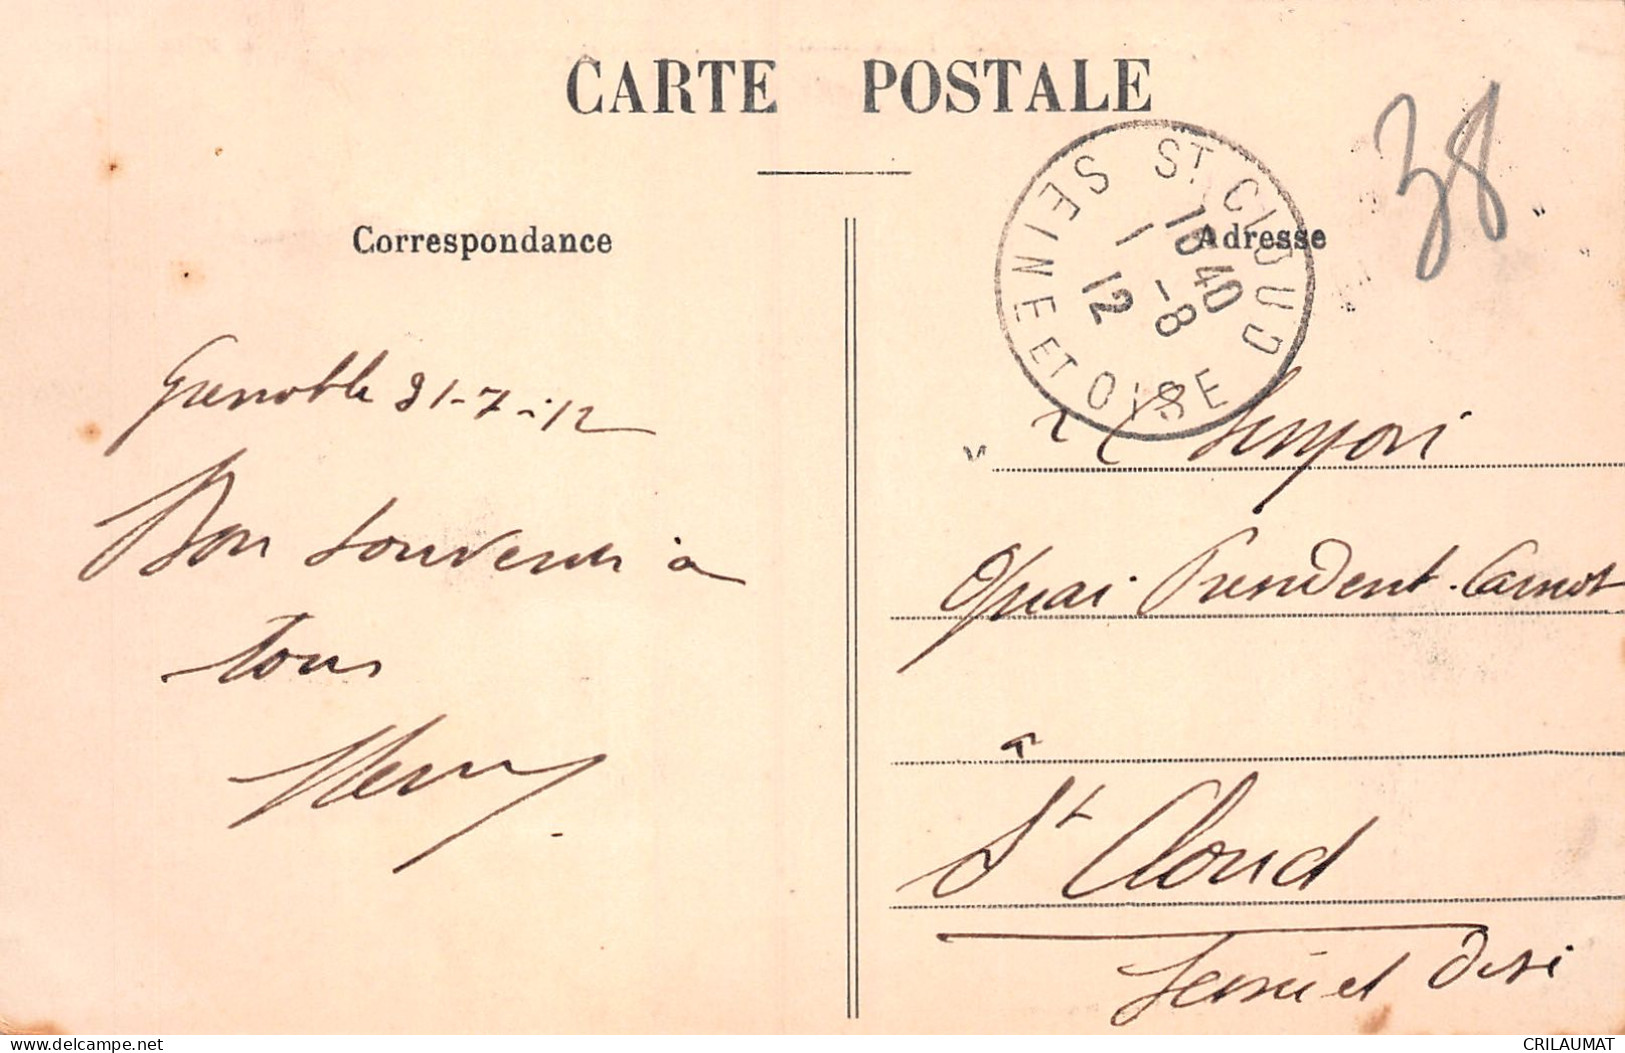 CARTE POSTALE
Correspondance
Adresse
38
ST CLOUD
16 40
1 -8
12
SEINE ET OISE
Grenoble 31-7-12
Bon souvenir à
tous
Quai Président Carnot
à
St Cloud
Seine et Oise
CRILAUMAT